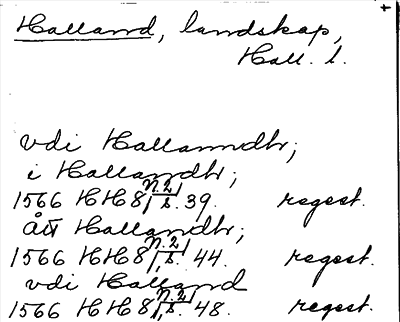 Halland, landskap,
Hall. l.
vdi Hallanndtr;
i Hallandtr;
1566 HH8 N.2, s. 39. regest.
ått Hallandtr;
1566 HH8 N.2, s. 44. regest.
vdi Halland
1566 HH8 N.2, s. 48. regest.